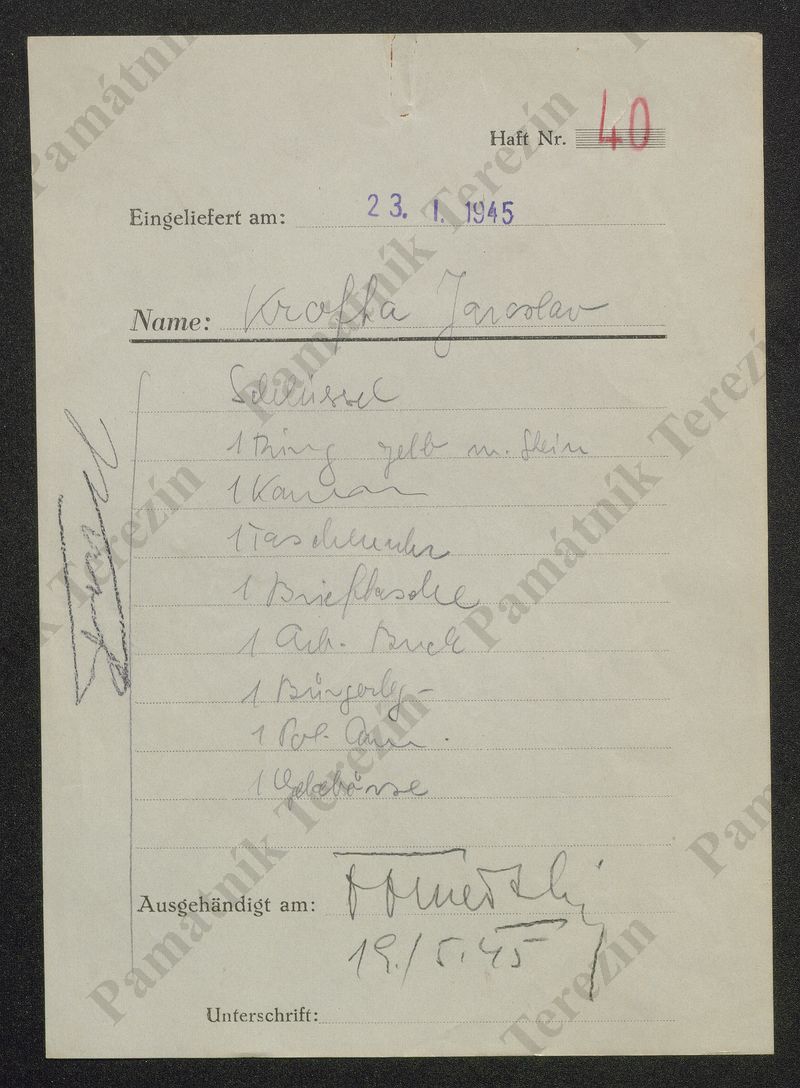 Haft Nr. 40
Eingeliefert am: 23. I. 1945
Name: Krofta Jaroslav
Schlüssel
1 Ring gelb m. Stein
1 Kamm
1 Taschenuhr
1 Brieftasche
1 Arb. Buch
1 Bürgerlg.
1 Pol. Anm.
1 Geldbörse
Ausgehändigt am:
19./5.45
Unterschrift:
Památník Terezín